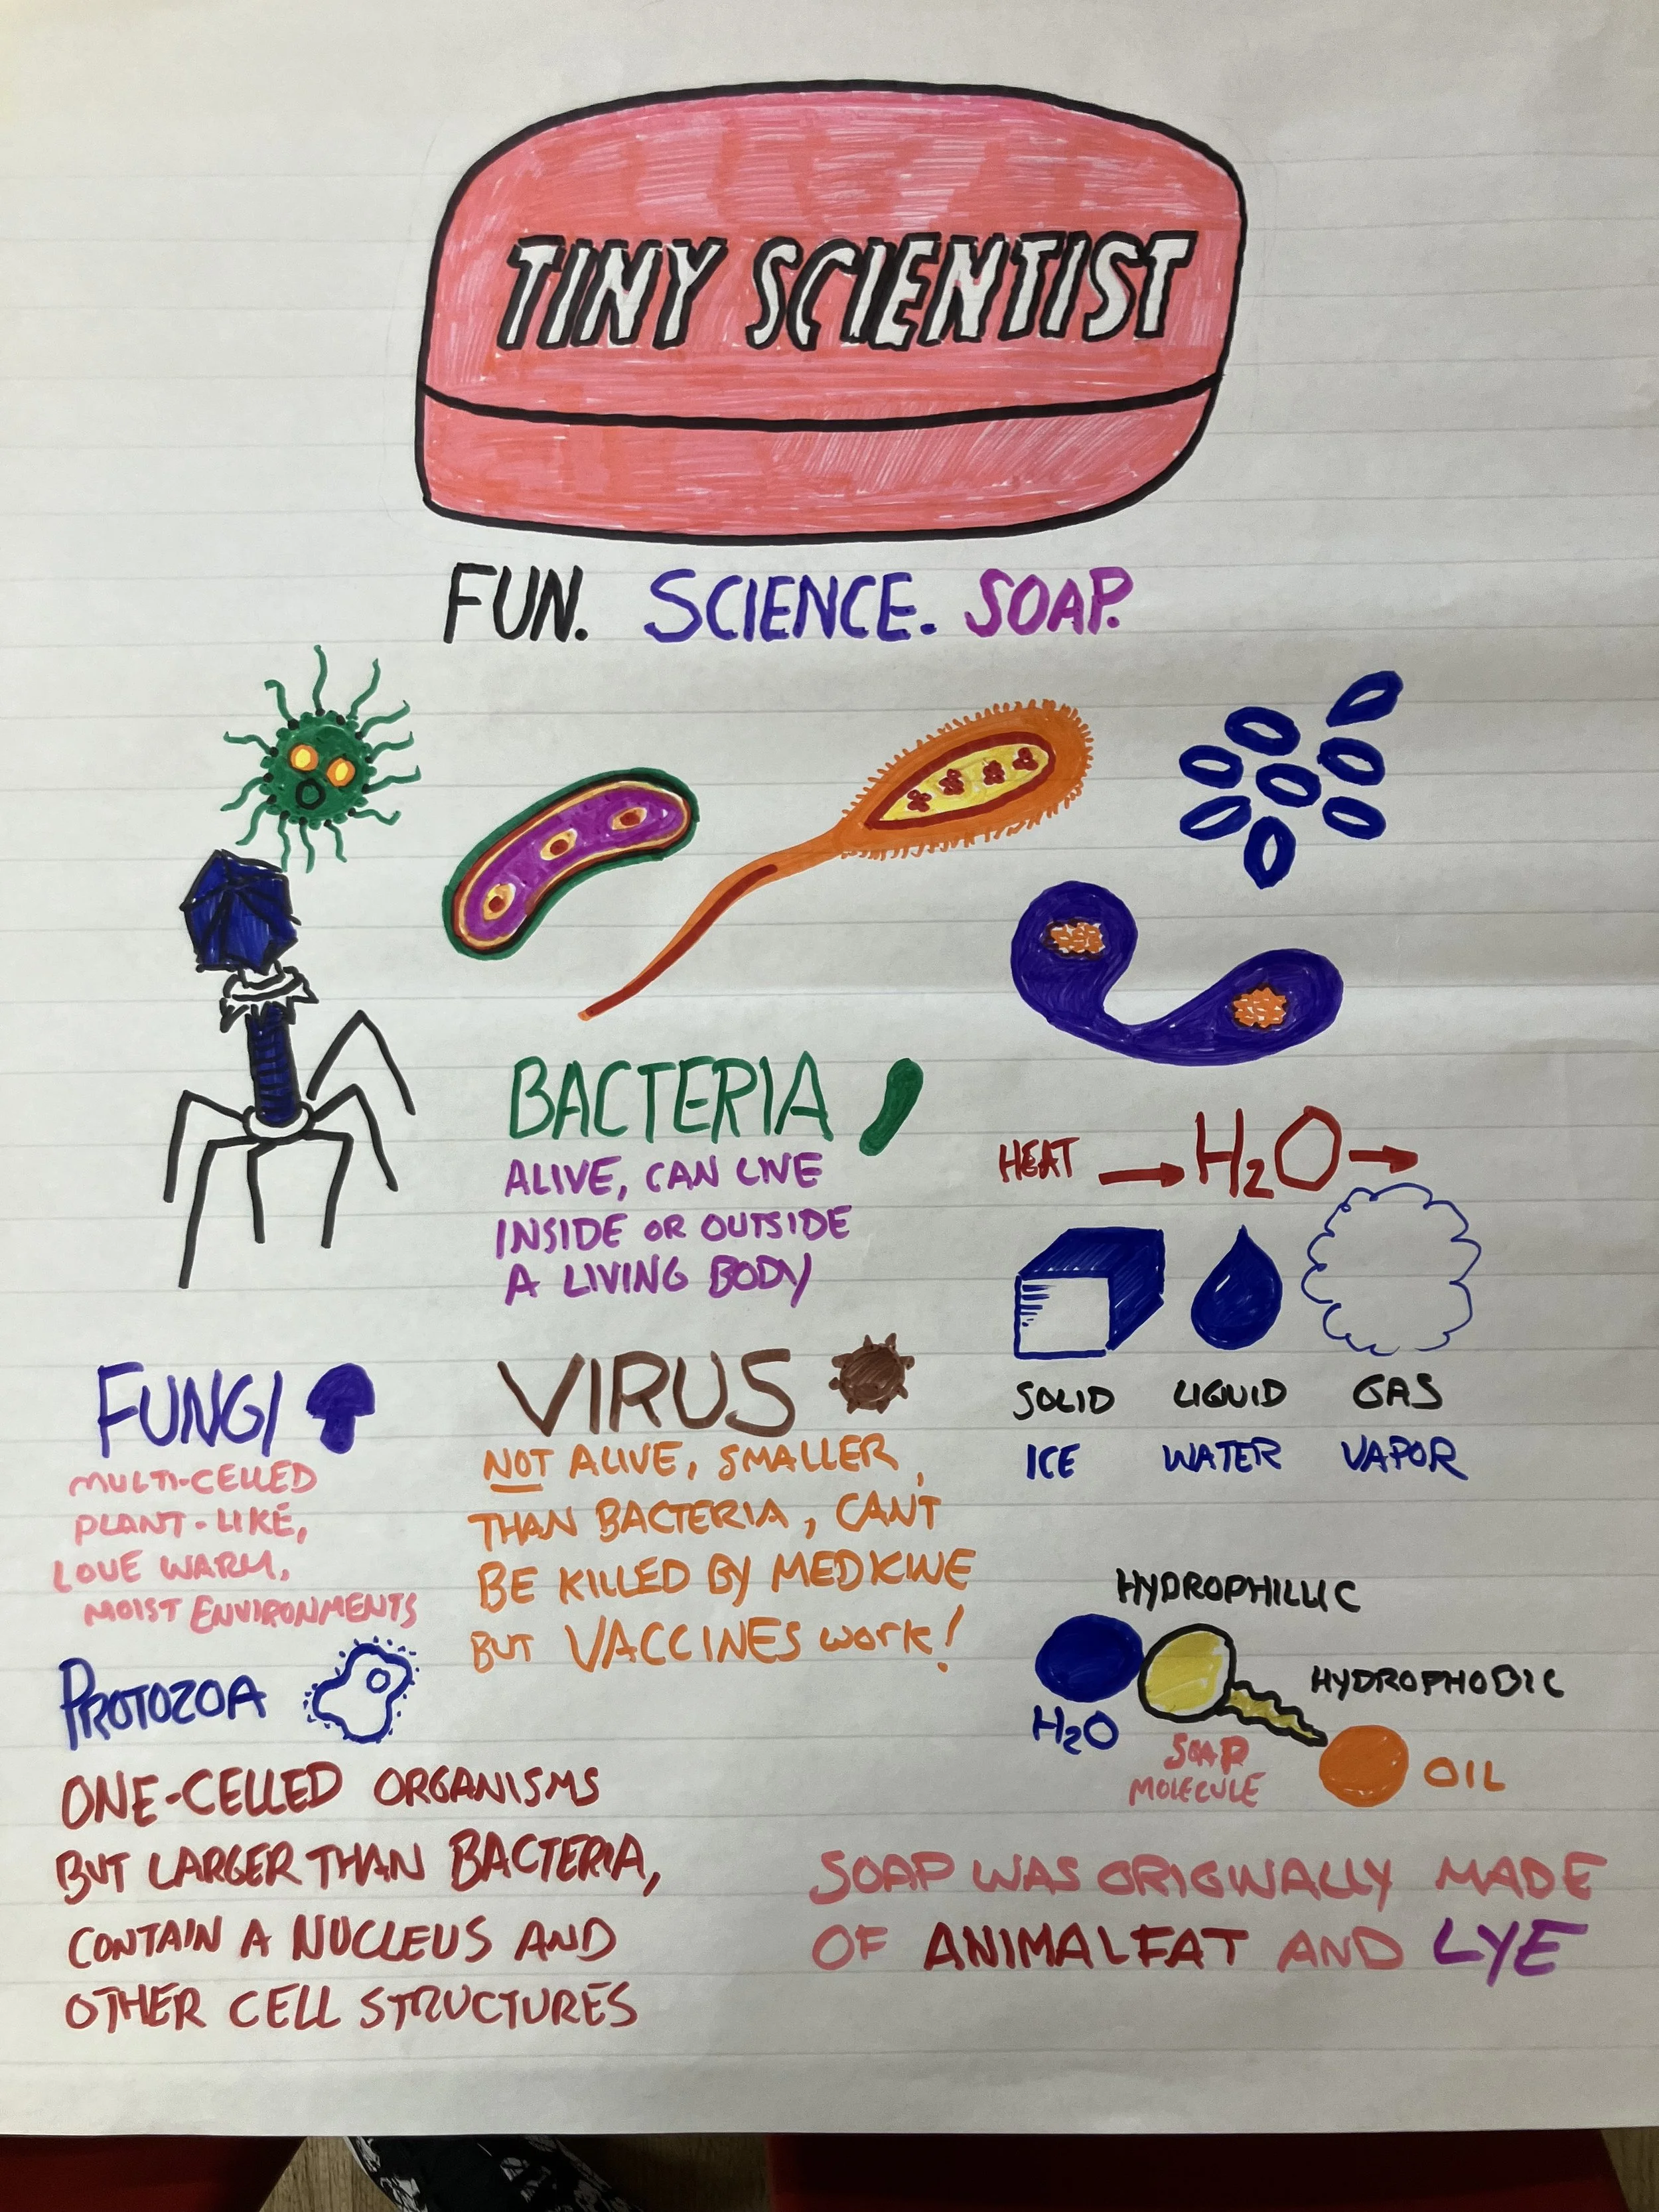 TINY SCIENTIST
FUN. SCIENCE. SOAP.
BACTERIA
ALIVE, CAN LIVE
INSIDE OR OUTSIDE
A LIVING BODY
HEAT → H₂O →
SOLID LIQUID GAS
ICE WATER VAPOR
FUNGI
MULTI-CELLED
PLANT-LIKE,
LOVE WARM,
MOIST ENVIRONMENTS
VIRUS
NOT ALIVE, SMALLER
THAN BACTERIA, CAN'T
BE KILLED BY MEDICINE
BUT VACCINES WORK!
PROTOZOA
ONE-CELLED ORGANISMS
BUT LARGER THAN BACTERIA,
CONTAIN A NUCLEUS AND
OTHER CELL STRUCTURES
HYDROPHILLIC
HYDROPHOBIC
H₂O
SOAP
MOLECULE
OIL
SOAP WAS ORIGINALLY MADE
OF ANIMAL FAT AND LYE